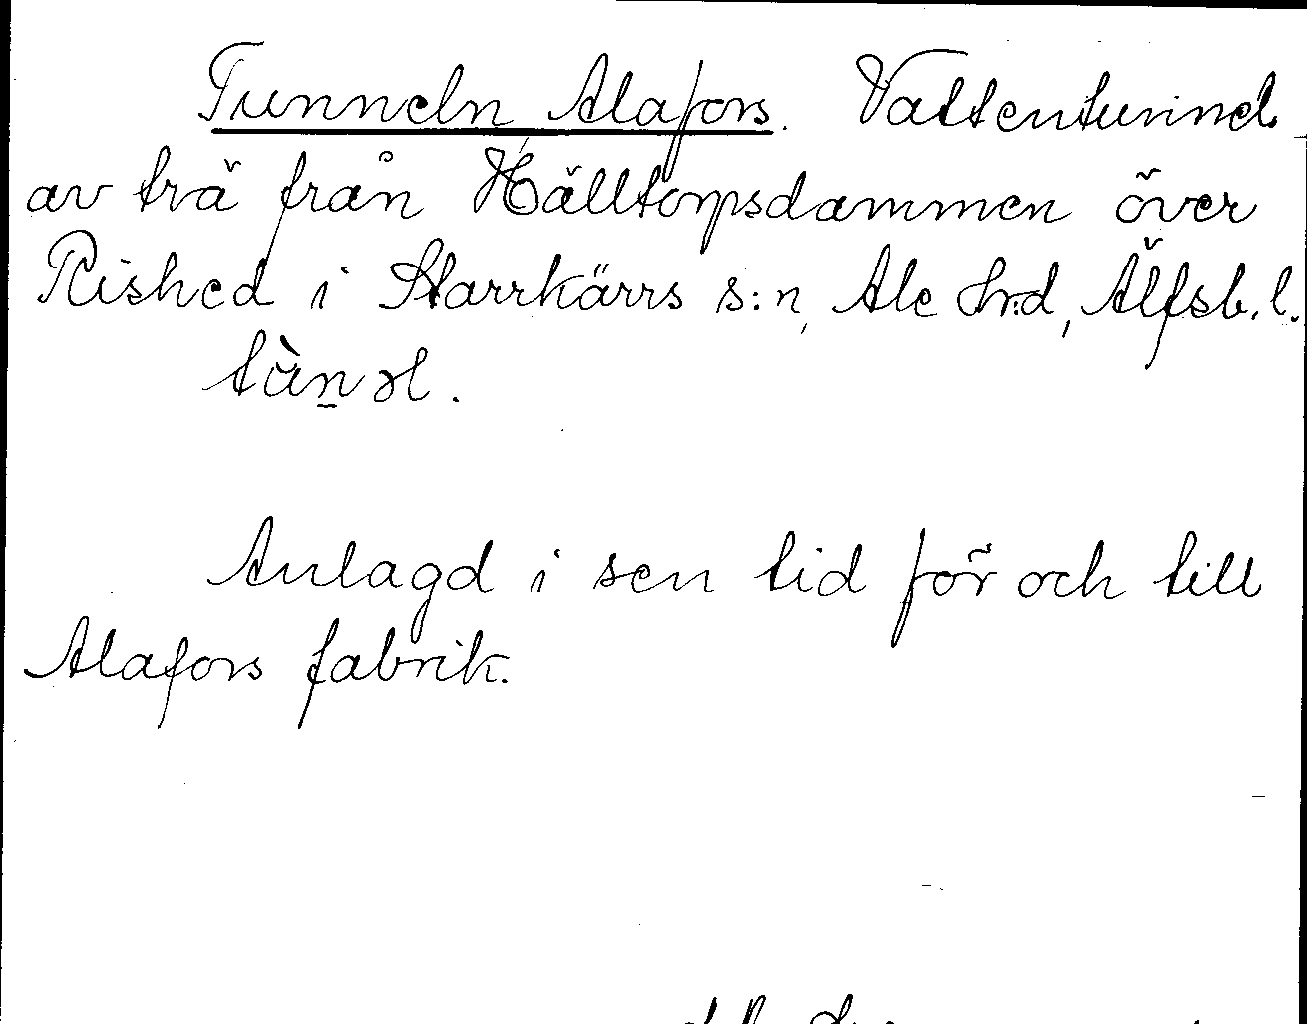 Tunneln, Alafors. Vattentunnel
av trä från Hälltorpsdammen över
Rished i Starrkärrs s:n, Ale hrd, Älfsb. l.
tùn̲əl.
Anlagd i sen tid för och till
Alafors fabrik.